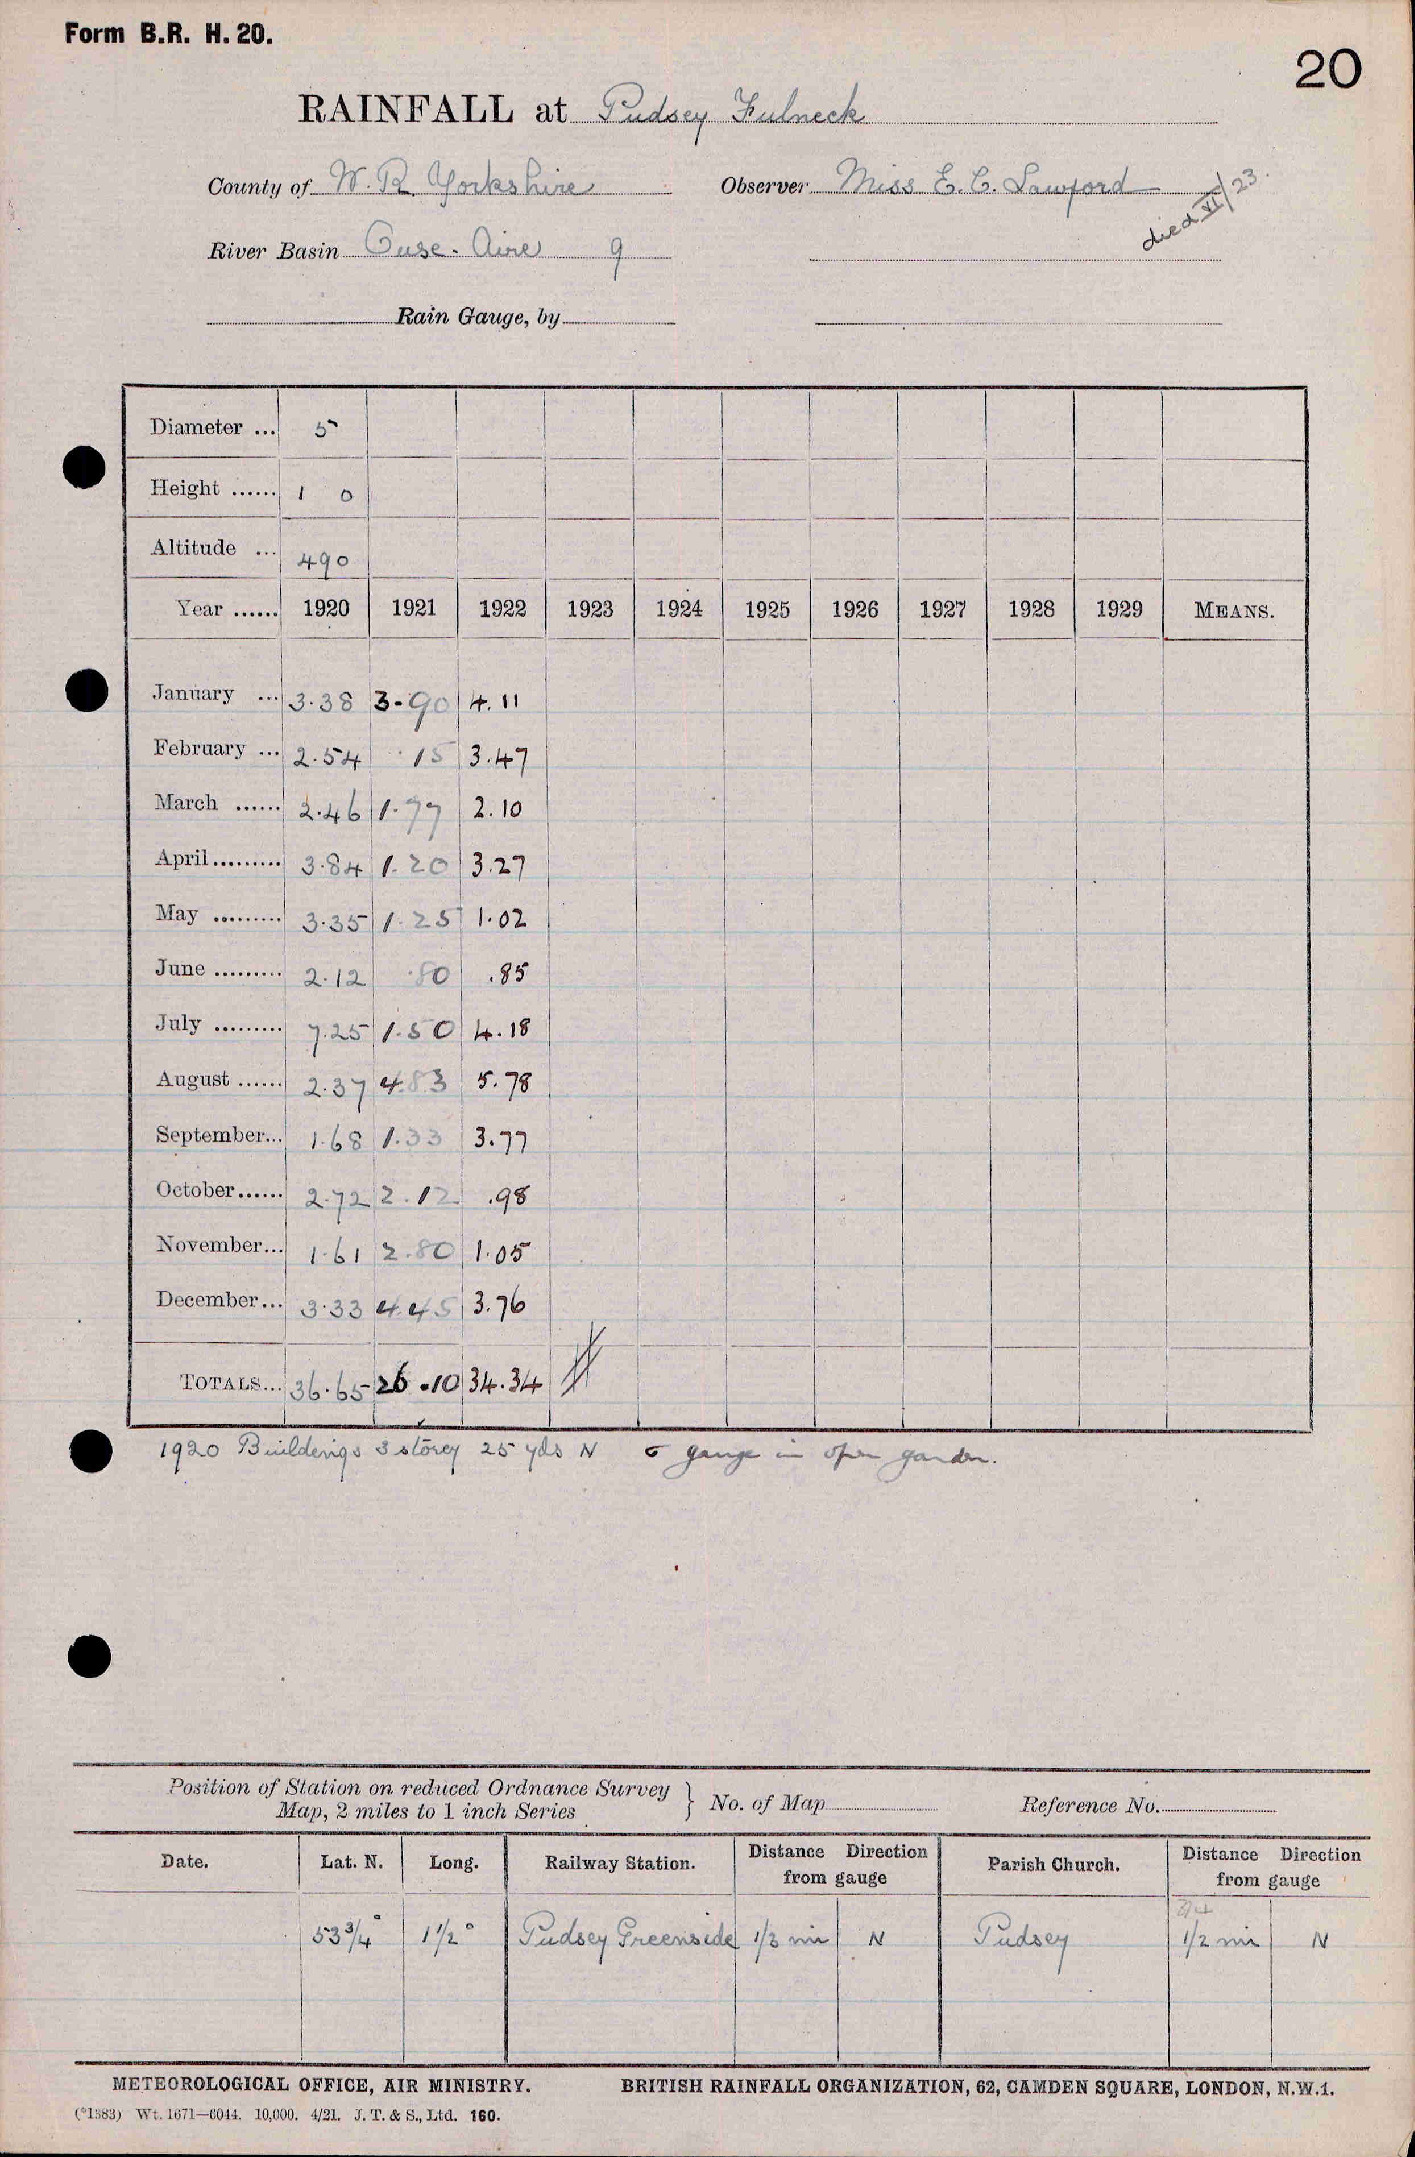 Form B.R. H. 20.
20
RAINFALL at Pudsey Fulneck
County of W. R. Yorkshire Observer Miss E. C. Lawford
died VI/23.
River Basin Ouse - Aire 9
Rain Gauge, by
Diameter ... 5
Height ...... 1 0
Altitude ... 490
Year ...... 1920 1921 1922 1923 1924 1925 1926 1927 1928 1929 MEANS.
January ... 3.38 3.90 4.11
February ... 2.54 .15 3.47
March ...... 2.46 1.77 2.10
April ......... 3.84 1.20 3.27
May ......... 3.35 1.25 1.02
June ......... 2.12 .80 .85
July ......... 7.25 1.50 4.18
August ...... 2.37 4.83 5.78
September... 1.68 1.33 3.77
October...... 2.72 2.12 .98
November... 1.61 2.80 1.05
December... 3.33 4.45 3.76
TOTALS... 36.65 26.10 34.34
1920 Buildings 3 storey 25 yds N gauge in open garden.
Position of Station on reduced Ordnance Survey
Map, 2 miles to 1 inch Series } No. of Map Reference No.
Date. Lat. N. Long. Railway Station. Distance Direction from gauge Parish Church. Distance Direction from gauge
3/4
53 3/4° 1 1/2° Pudsey Greenside 1/3 mi N Pudsey 1/2 mi N
METEOROLOGICAL OFFICE, AIR MINISTRY. BRITISH RAINFALL ORGANIZATION, 62, CAMDEN SQUARE, LONDON, N.W.1.
(*1383) Wt. 1671—6044. 10,000. 4/21. J. T. & S., Ltd. 160.